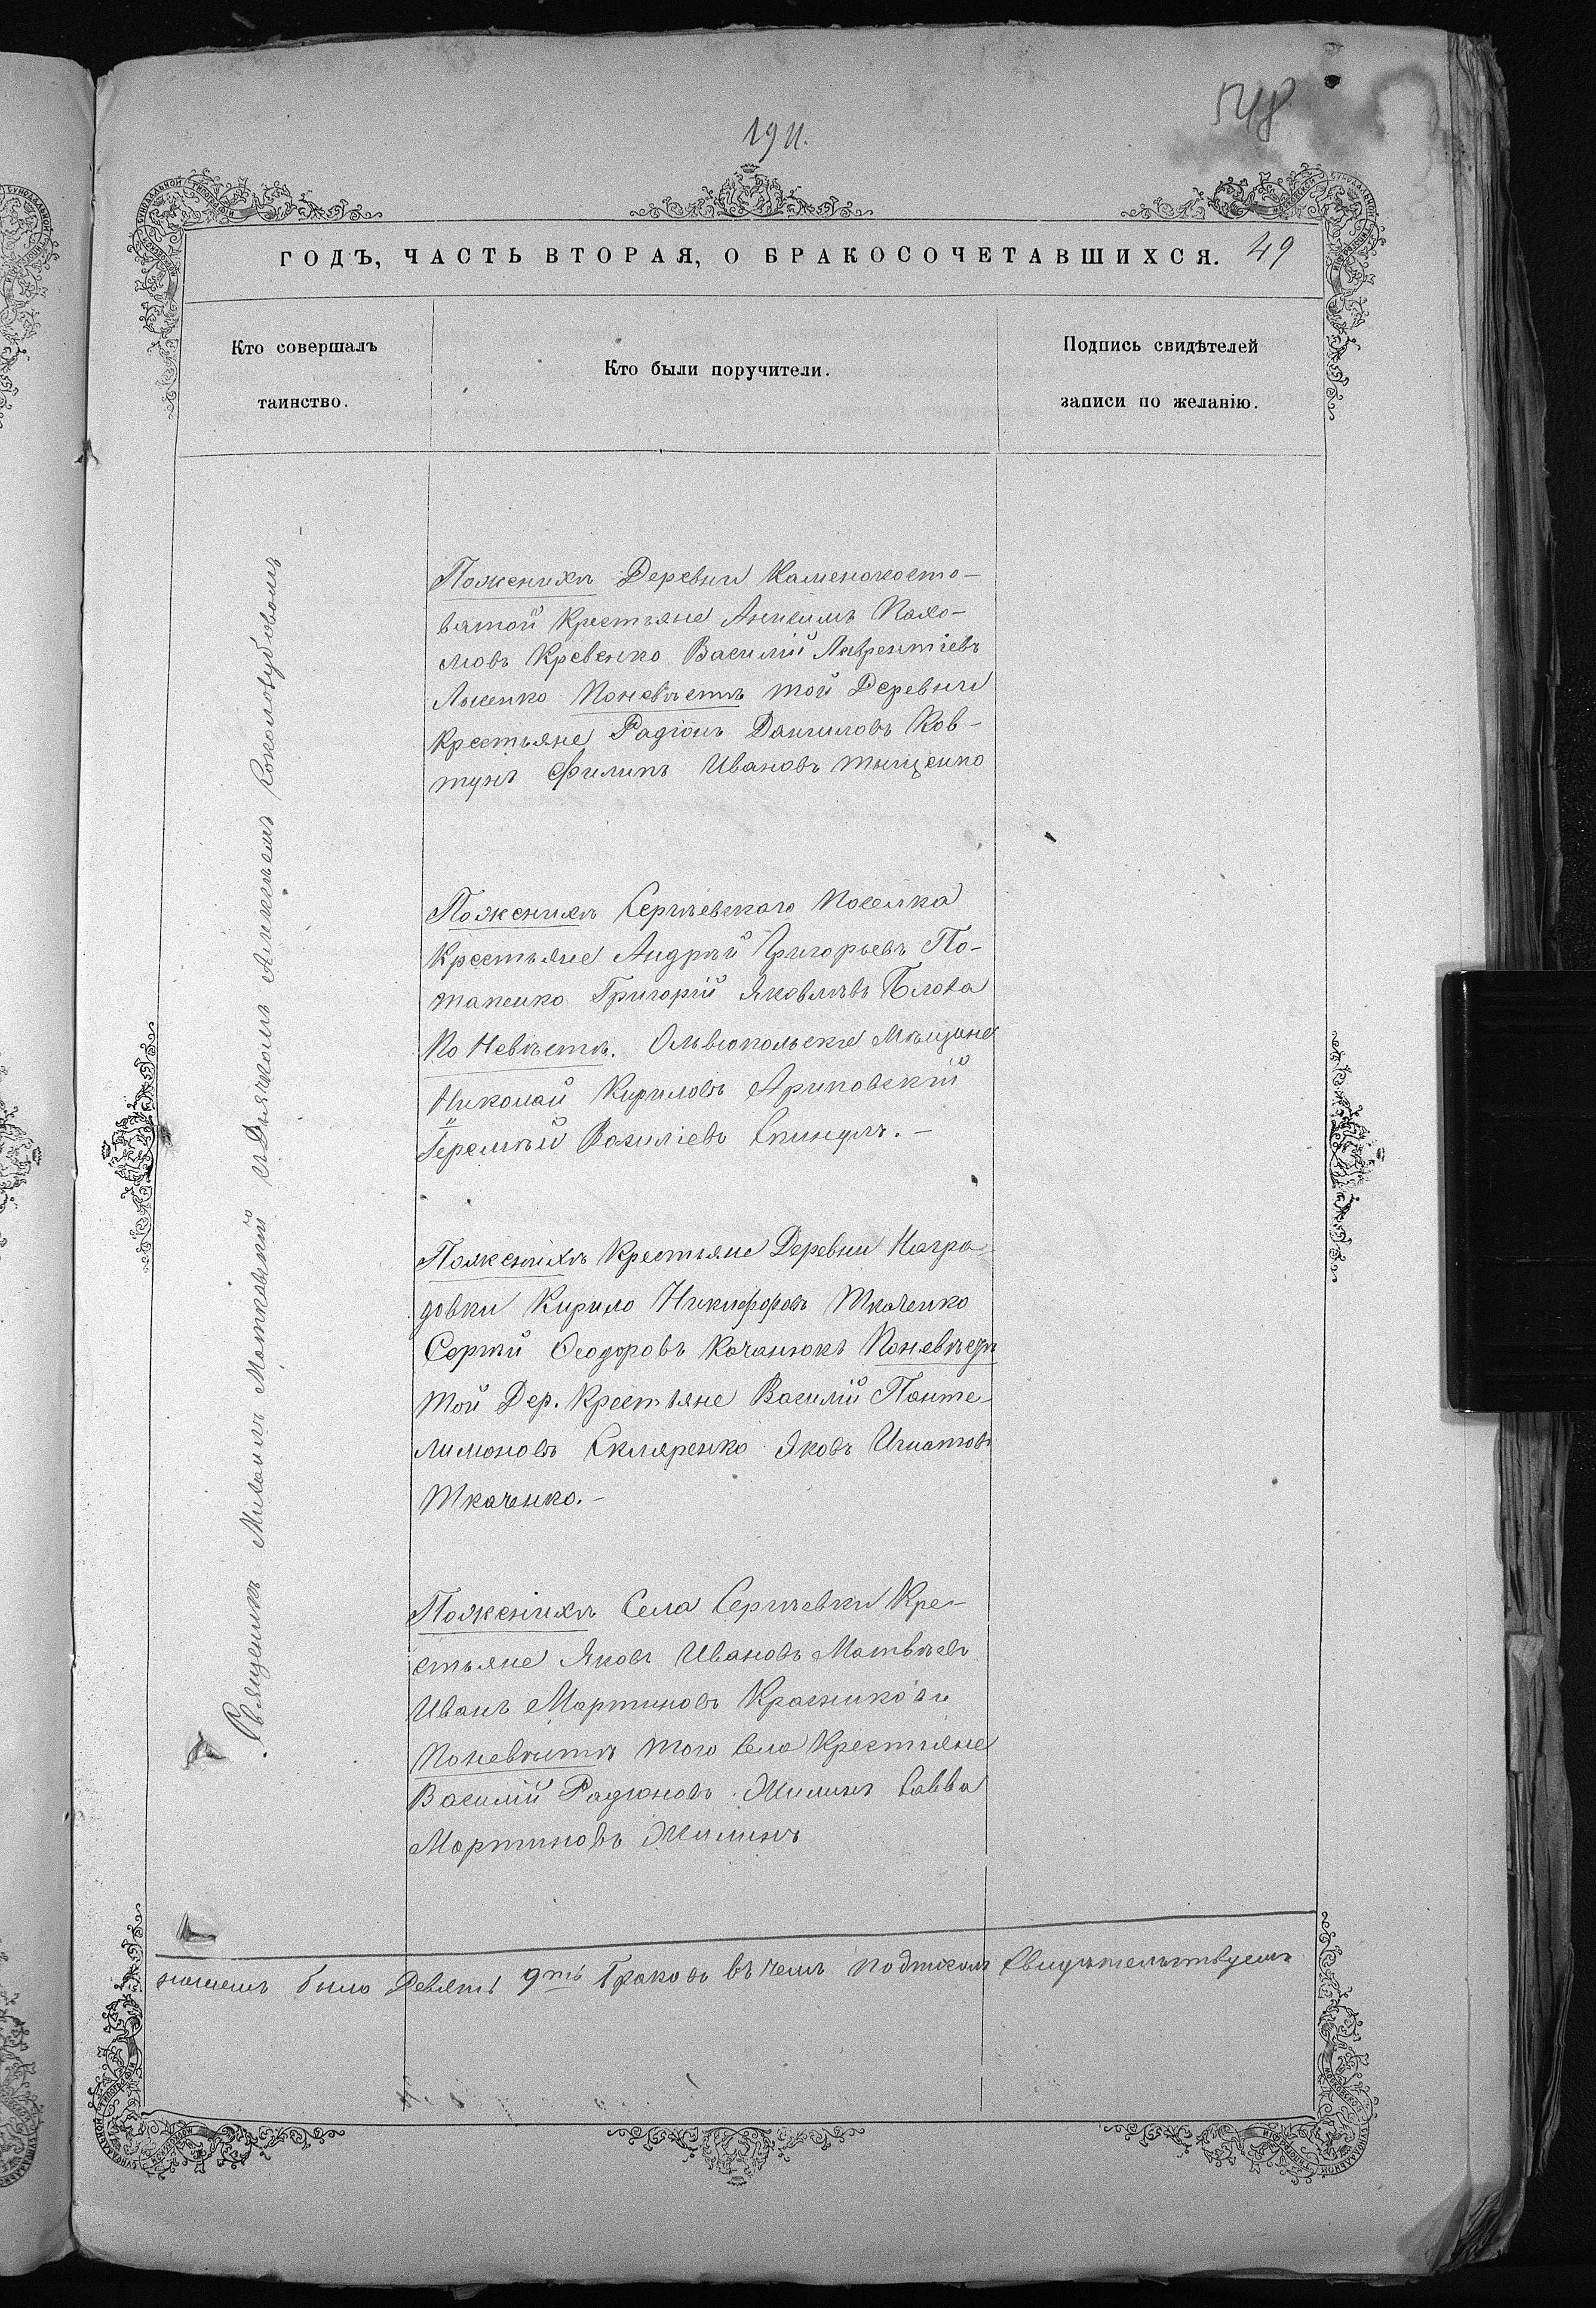 1911.
548
ГОДЪ, ЧАСТЬ ВТОРАЯ, О БРАКОСОЧЕТАВШИХСЯ. 49
Кто совершалъ
таинство.
Кто были поручители.
Подпись свидѣтелей
записи по желанію.
Священикъ Михаилъ Матковскій съ Дьячкомъ Алексѣемъ
Поженихѣ Деревни Каменокосто-
ватой Крестьяне Анисимъ Пахо-
мовъ Кревенко Василій Лаврентіевъ
Поневѣстѣ той Деревни
Крестьяне Радіонъ Даниловъ Ков-
тунъ Филипъ Ивановъ Тыщенко
Поженихѣ Сергѣевскаго Поселка
Крестьяне Андрѣй Григорьевъ По-
тапенко Григорій Яковлѣвъ
По Невѣстѣ. Ольвіопольскіе Мѣщане
Николай Кириловъ
Іеремѣй Василіевъ
Поженихѣ Крестьяне Деревни Награ-
довки Кирило Никифоровъ Ткаченко
Сергѣй Ѳеодоровъ Качанюкъ Поневѣстѣ
той Дер. Крестьяне Василій Панте-
лимоновъ Скляренко Яковъ Игнатовъ
Ткаченко.-
Поженихѣ Села Сергѣевки Кре-
стьяне Яковъ Ивановъ Матвѣевъ
Иванъ Мартиновъ Красниковъ
Поневѣстѣ того Села Крестьяне
Василій Радіоновъ Жилинъ Савва
Мартиновъ Жилинъ
было Девять 9ть браковъ въ чемъ подписомъ Свидѣтельствуемъ